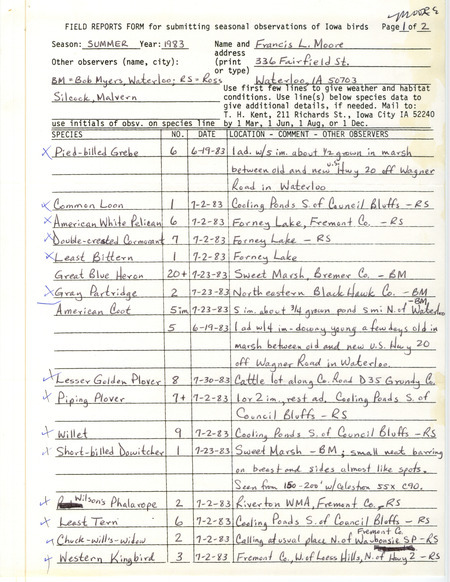 MOORE
FIELD REPORTS FORM for submitting seasonal observations of Iowa birds Page 1 of 2
Season: SUMMER Year: 1983 Name and Francis L. Moore
address
Other observers (name, city): (print 336 Fairfield St.
or type)
BM = Bob Myers, Waterloo; RS = Ross Waterloo, IA 50703
Silcock, Malvern
Use first few lines to give weather and habitat
conditions. Use line(s) below species data to
give additional details, if needed. Mail to:
T. H. Kent, 211 Richards St., Iowa City IA 52240
use initials of obsv. on species line by 1 Mar, 1 Jun, 1 Aug, or 1 Dec.
SPECIES NO. DATE LOCATION - COMMENT - OTHER OBSERVERS
X Pied-billed Grebe 6 6-19-83 1 ad. w/5 im. about 1/2 grown in marsh
between old and new U.S. Hwy 20 off Wagner
Road in Waterloo
X Common Loon 1 7-2-83 Cooling Ponds S. of Council Bluffs - RS
X American White Pelican 6 7-2-83 Forney Lake, Fremont Co. - RS
X Double-crested Cormorant 7 7-2-83 Forney Lake - RS
X Least Bittern 1 7-2-83 Forney Lake
Great Blue Heron 20+ 7-23-83 Sweet Marsh, Bremer Co. - BM
X Gray Partridge 2 7-23-83 Northeastern Black Hawk Co. - BM
American Coot 5im 7-23-83 5 im. about 3/4 grown pond 5mi N. of Waterloo - BM,
5 6-19-83 1 ad w/4 im-downy young a few days old in
marsh between old and new U.S. Hwy 20
off Wagner Road in Waterloo.
X Lesser Golden Plover 8 7-30-83 Cattle lot along Co. Road D35 Grundy Co.
X Piping Plover 7+ 7-2-83 1 or 2 im., rest ad. Cooling Ponds S. of
Council Bluffs - RS
X Willet 9 7-2-83 Cooling Ponds S. of Council Bluffs - RS
X Short-billed Dowitcher 1 7-23-83 Sweet Marsh - BM; small neat barring
on breast and sides almost like spots.
Seen from 150-200' w/Celestron 55X C90.
X Wilson's Phalarope 2 7-2-83 Riverton WMA, Fremont Co., RS
X Least Tern 6 7-2-83 Cooling Ponds S. of Council Bluffs - RS
X Chuck-will's-widow 2 7-2-83 Calling at usual place N. of Waubonsie SP - RS
Fremont Co.
X Western Kingbird 3 7-2-83 Fremont Co., W. of Loess Hills, N. of Hwy 2 - RS